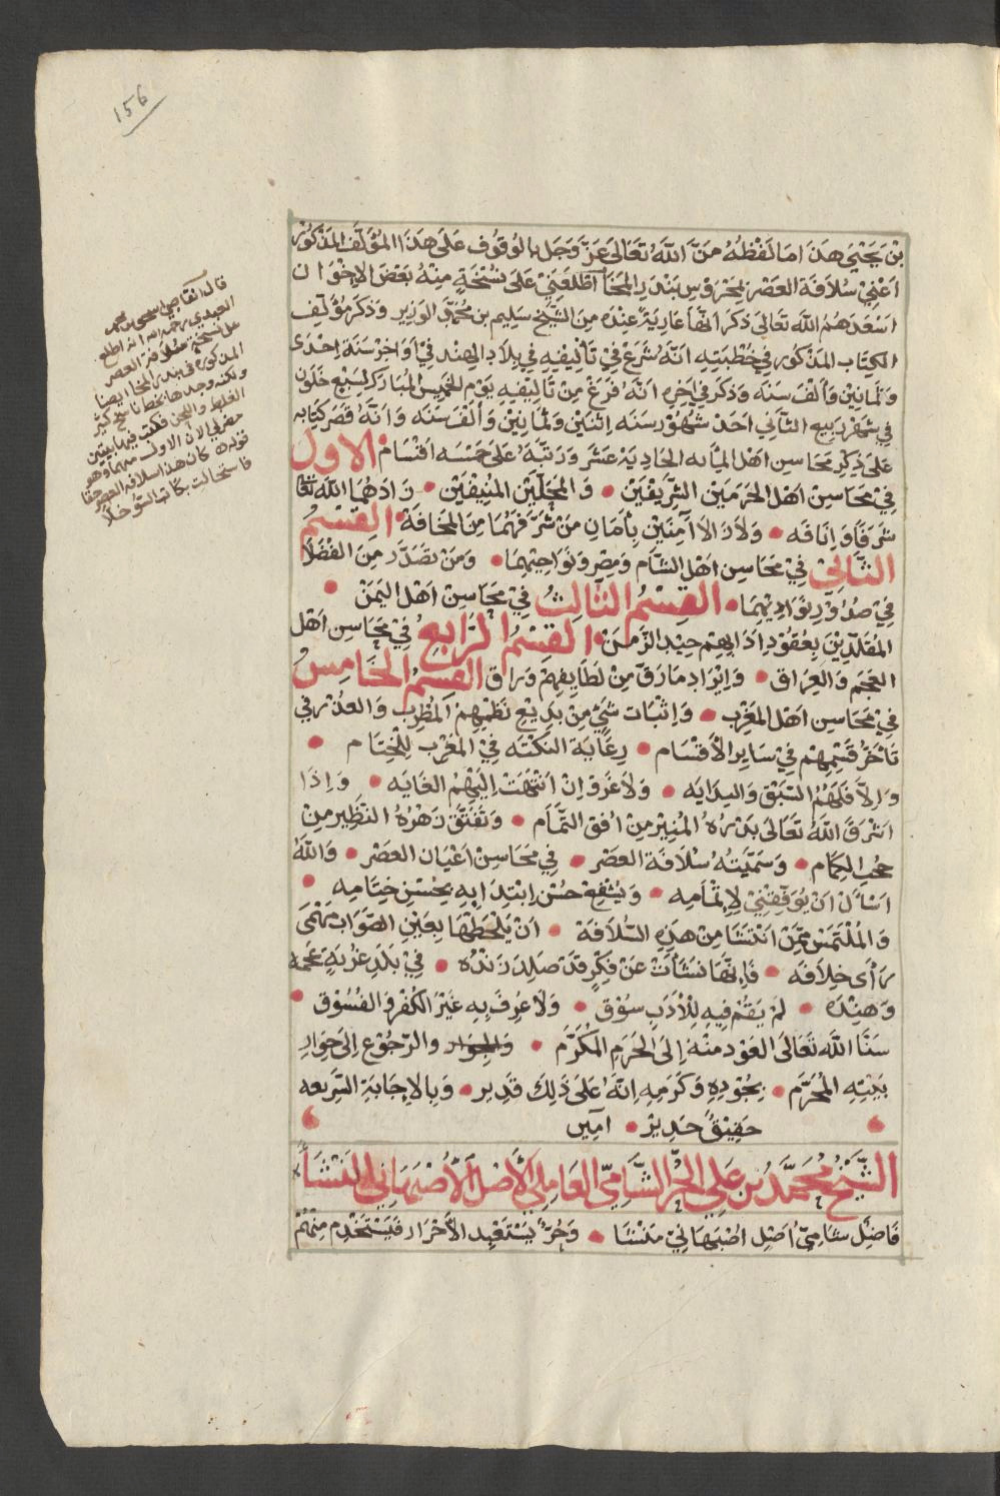 156
بن يحيى هذا ما لفظه من الله تعالى عز وجل بالوقوف على هذا المؤلف المذكور
اعني سلافة العصر بمحروس بندر المخا اطلعني على نسخة منه بعض الاخوان
اسعدهم الله تعالى ذكر انها عارية عنده من الشيخ سليم بن محمد الوزير وذكر مؤلف
الكتاب المذكور في خطبته انه شرع في تأليفه في بلاد الهند في اواخر سنة احدى
وثمانين وألف سنه وذكر في اخره انه فرغ من تاليفه يوم الخميس المبارك لسبع خلون
في شهر ربيع الثاني احد شهور سنه اثنين وثمانين وألف سنه وانه قصر كتابه
على ذكر محاسن اهل المأيه الحادية عشر ورتبه على خمسه اقسام الاول
في محاسن اهل الحرمين الشريفين • والمحلين المنيفين • زادهما الله تعا
شرفا وانافه • ولا زالا آمنين بأمان من شرفهما من المخافة • القسم
الثاني في محاسن اهل الشام ومصر ونواحيهما • ومن تصدر من الفضلا
في صدور نواديهما • القسم الثالث في محاسن اهل اليمن •
المقلدين بعقود ادابهم جيد الزمن • القسم الرابع في محاسن اهل
العجم والعراق • وايراد ما رق من لطايفهم وراق القسم الخامس
في محاسن اهل المغرب • واثبات شيء من بديع نظمهم المطرب والعذر في
تأخر قسمهم في ساير الأقسام • رعاية النكته في المغرب للختام •
والا فلهم السبق والبدايه • ولا غرو ان انتهت اليهم الغايه • واذا
اشرق الله تعالى بدره المنير من افق التمام • وتفتق زهره النظير من
حجب الكمام • وسميته سلافة العصر • في محاسن اعيان العصر • والله
اسأل ان يوفقني لاتمامه • ويشفع حسن ابتدايه بحسن ختامه •
والملتمس ممن انتشا من هذه السلافة • ان يلحظها بعين الصواب مهمى
رأى خلافه • فانها نشأت عن فكر قد صلد زنده • في بلد غربة عجمه
وهنده • لم يقم فيه للأدب سوق • ولا عرف به غير الكفر والفسوق •
سنا الله تعالى العود منه الى الحرم المكرم • والجوار والرجوع الى جوار
بيته المحرم • بجوده وكرمه انه على ذلك قدير • وبالاجابة السريعه
حقيق جدير • امين
الشيخ محمد بن علي الحر الشامي العاملي الأصل الأصبهاني المنشأ
فاضل شامي اصل اصبهاني منشا • وحر يستعبد الأحرار فيستخدم منهم
قال القاضي يحيى بن محمد
العبدي رحمه الله انه اطلع
على نسخة سلافة العصر
المذكوره في بندر المخا ايضا
ولكنه وجدها بخط ناسخ كثير
الغلط واللحن فكتب فيها بيتين
حضرني الان الاول منهما وهو
قوله كان هذا سلافة العصر حقا
فاستحالت بكاتب السوء خلا